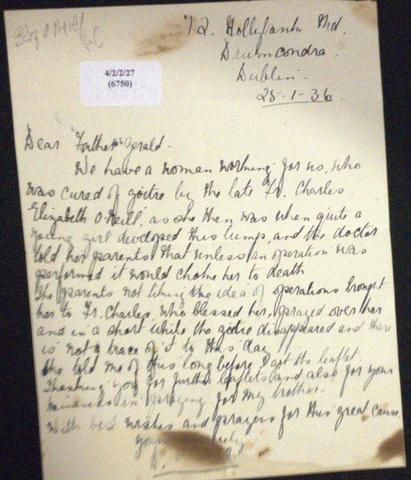 72. Hollybank Rd.
Drumcondra.
Dublin.
25-1-36.
4/2/2/27
(6750)
Dear Father Gerald-
We have a woman working for us, who
was cured of goitre by the late Fr. Charles
Elizabeth O'Neill, as she then was when quite a
young girl developed this lump, and the doctor
told her parents that unless an operation was
performed it would choke her to death
The parents not liking the idea of operations brought
her to Fr. Charles, who blessed her, prayed over her
and in a short while the goitre disappeared and there
is not a trace of it to this day
She told me of this long before I got the leaflet.
Thanking you for further leaflets and also for your
kindness in praying for my brother.
With best wishes and prayers for this great cause
Yours